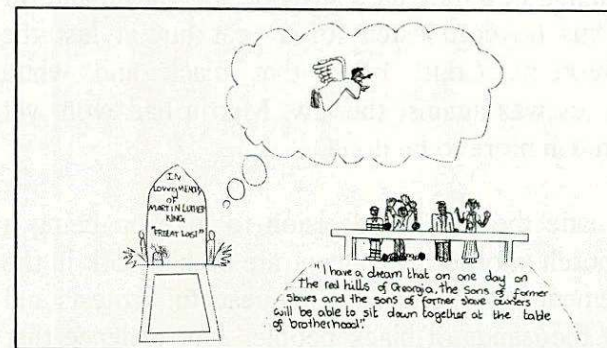 IN
Loving MEMORY
of
MARTIN LUTHER
KING
"FREE AT LAST"
"I have a dream that on one day on
the red hills of Georgia, the sons of former
slaves and the sons of former slave owners
will be able to sit down together at the table
of brotherhood."